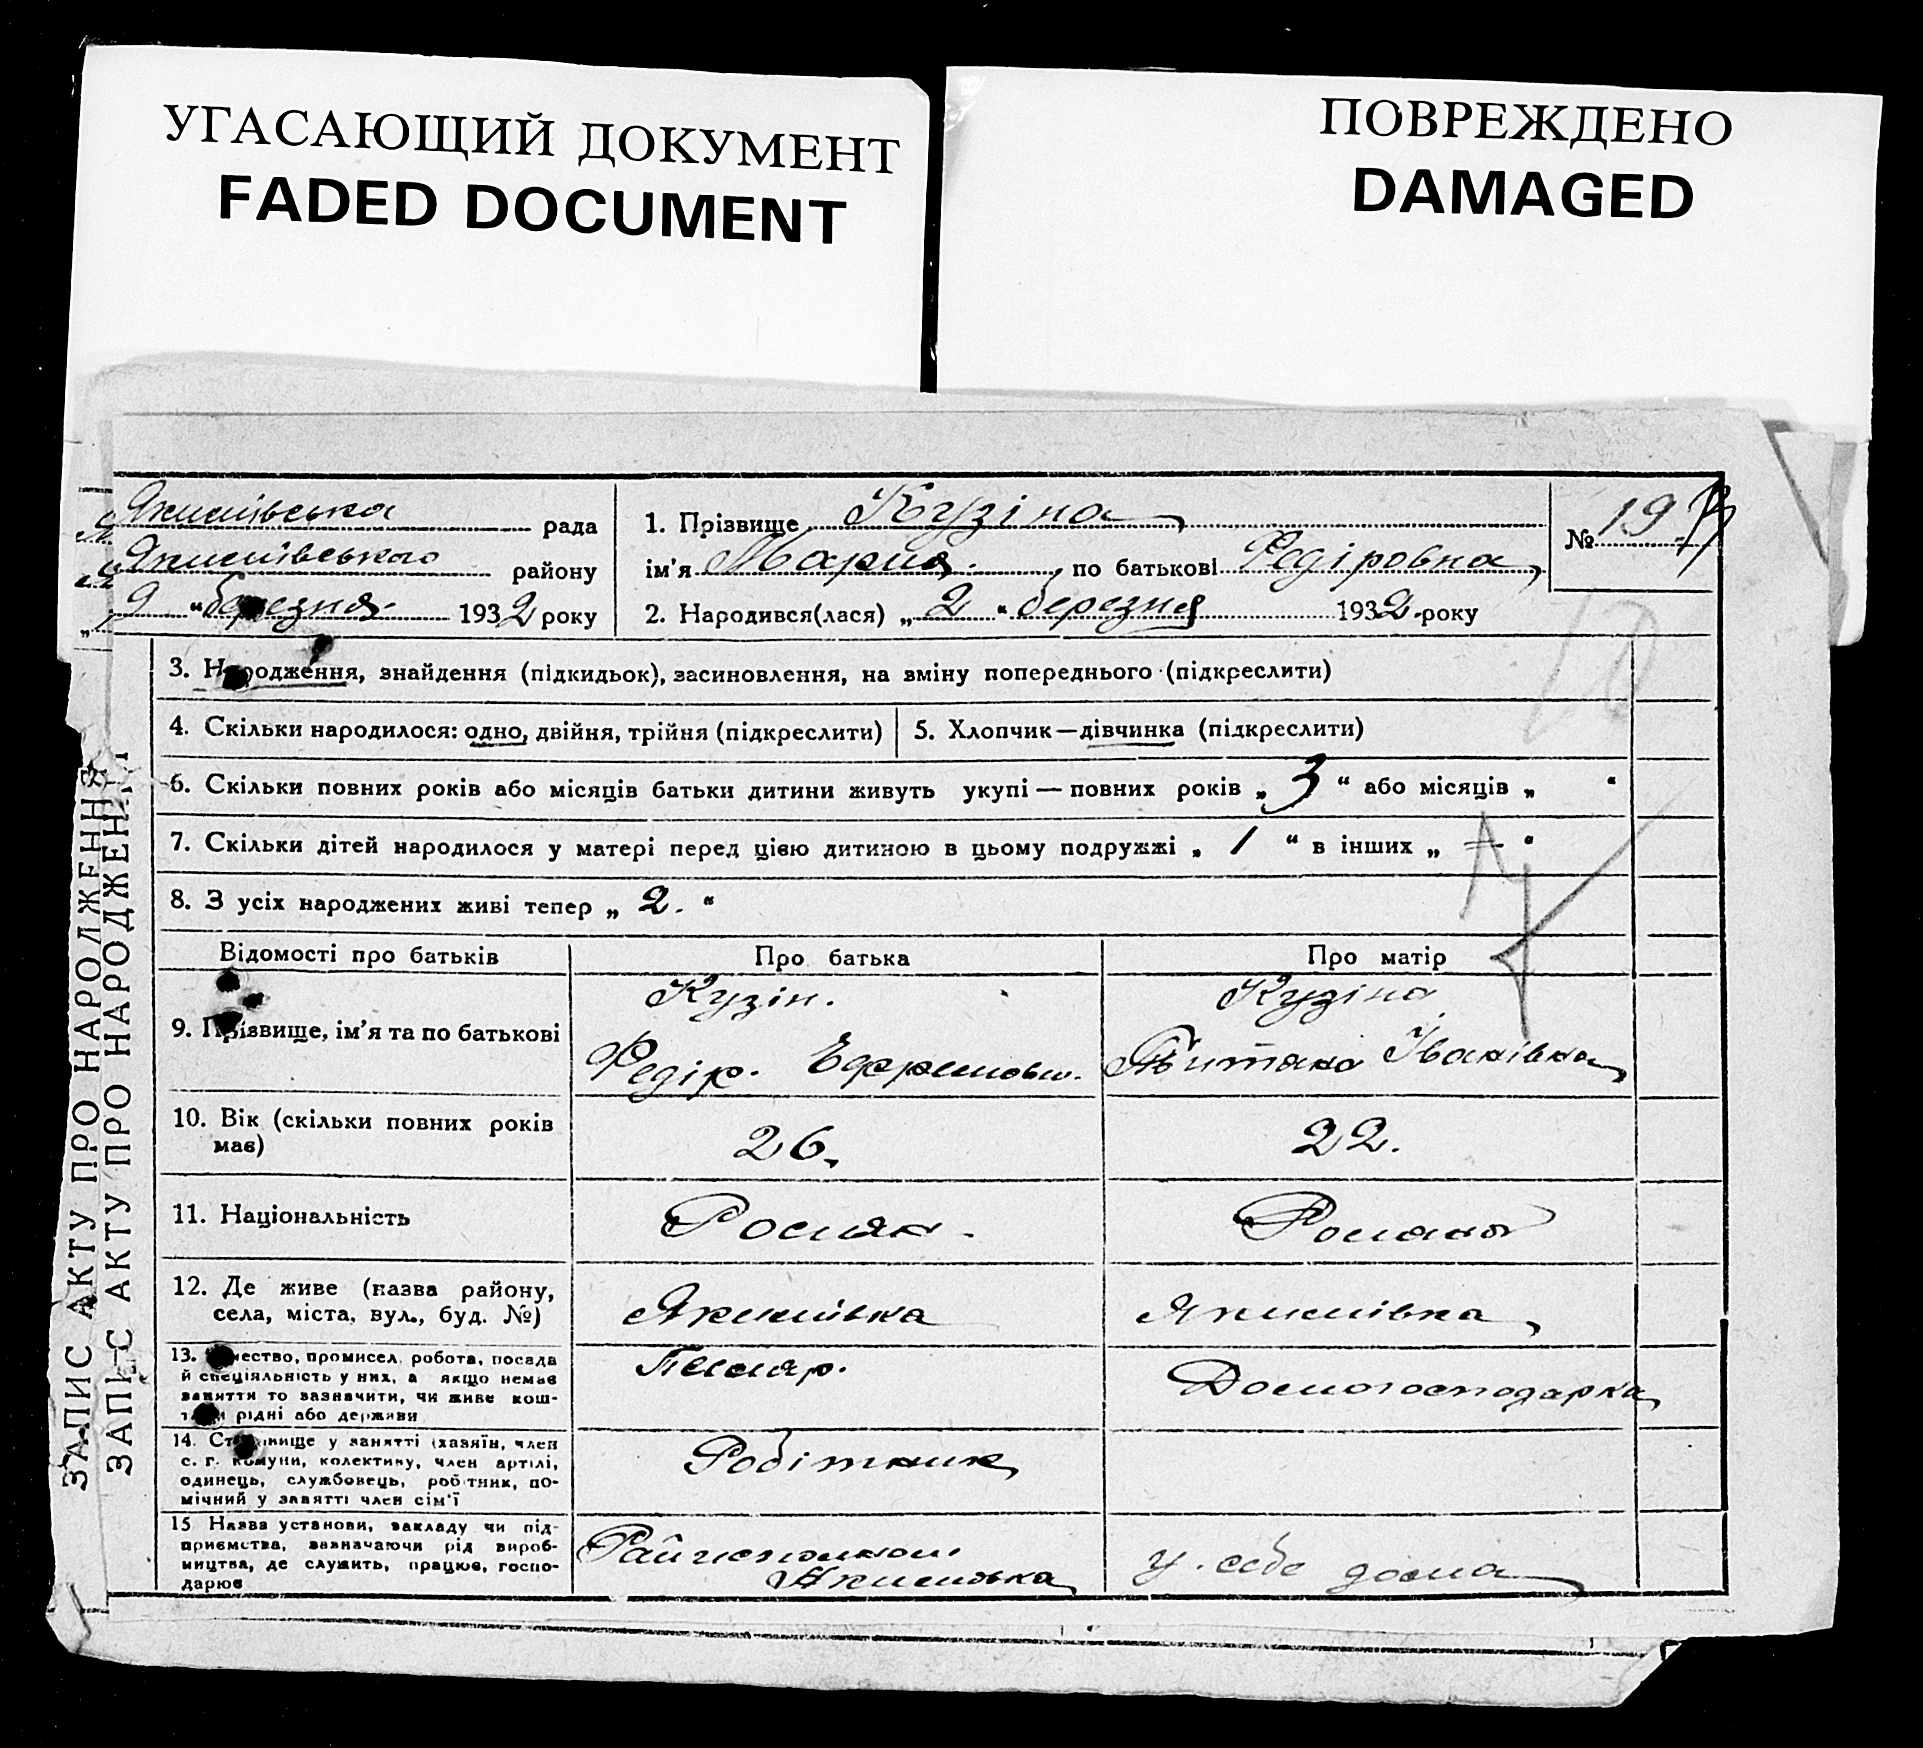 УГАСАЮЩИЙ ДОКУМЕНТ
FADED DOCUMENT
ПОВРЕЖДЕНО
DAMAGED
ЗАПИС АКТУ ПРО НАРОДЖЕННЯ
ЗАПИС АКТУ ПРО НАРОДЖЕННЯ
Якимівська рада
Якимівського району
9 "березня 1932 року
1. Прізвище Кузіна
ім'я Мария по батькові Федіровна
2. Народився(лася) „2" березня 1932 року
№ 19
3. Народження, знайдення (підкидьок), засиновлення, на зміну попереднього (підкреслити)
4. Скільки народилося: одно, двійня, трійня (підкреслити)
5. Хлопчик—дівчинка (підкреслити)
6. Скільки повних років або місяців батьки дитини живуть укупі — повних років „3" або місяців „ "
7. Скільки дітей народилося у матері перед цією дитиною в цьому подружжі „1" в інших „—"
8. З усіх народжених живі тепер „2."
Відомості про батьків
Про батька
Про матір
9. Прізвище, ім'я та по батькові
Кузін.
Федір. Ефремов
Кузіна
Іванівна
10. Вік (скільки повних років має)
26.
22.
11. Національність
Росіян.
Росіянка
12. Де живе (назва району, села, міста, вул., буд. №)
Якимівка
Якимівка
13. Ремество, промисел, робота, посада
й спеціяльність у них, а якщо немає
заняття то зазначити, чи живе кош-
том рідні або держави
Домогосподарка
14. Становище у занятті (хазяїн, член
с. г. комуни, колективу, член артілі,
одинець, службовець, робітник, по-
мічний у занятті член сім'ї
Робітник
15 Назва установи, закладу чи під-
приємства, зазначаючи рід вироб-
ництва, де служить, працює, госпо-
дарює
Райисполком
Якимовка
у себе дома